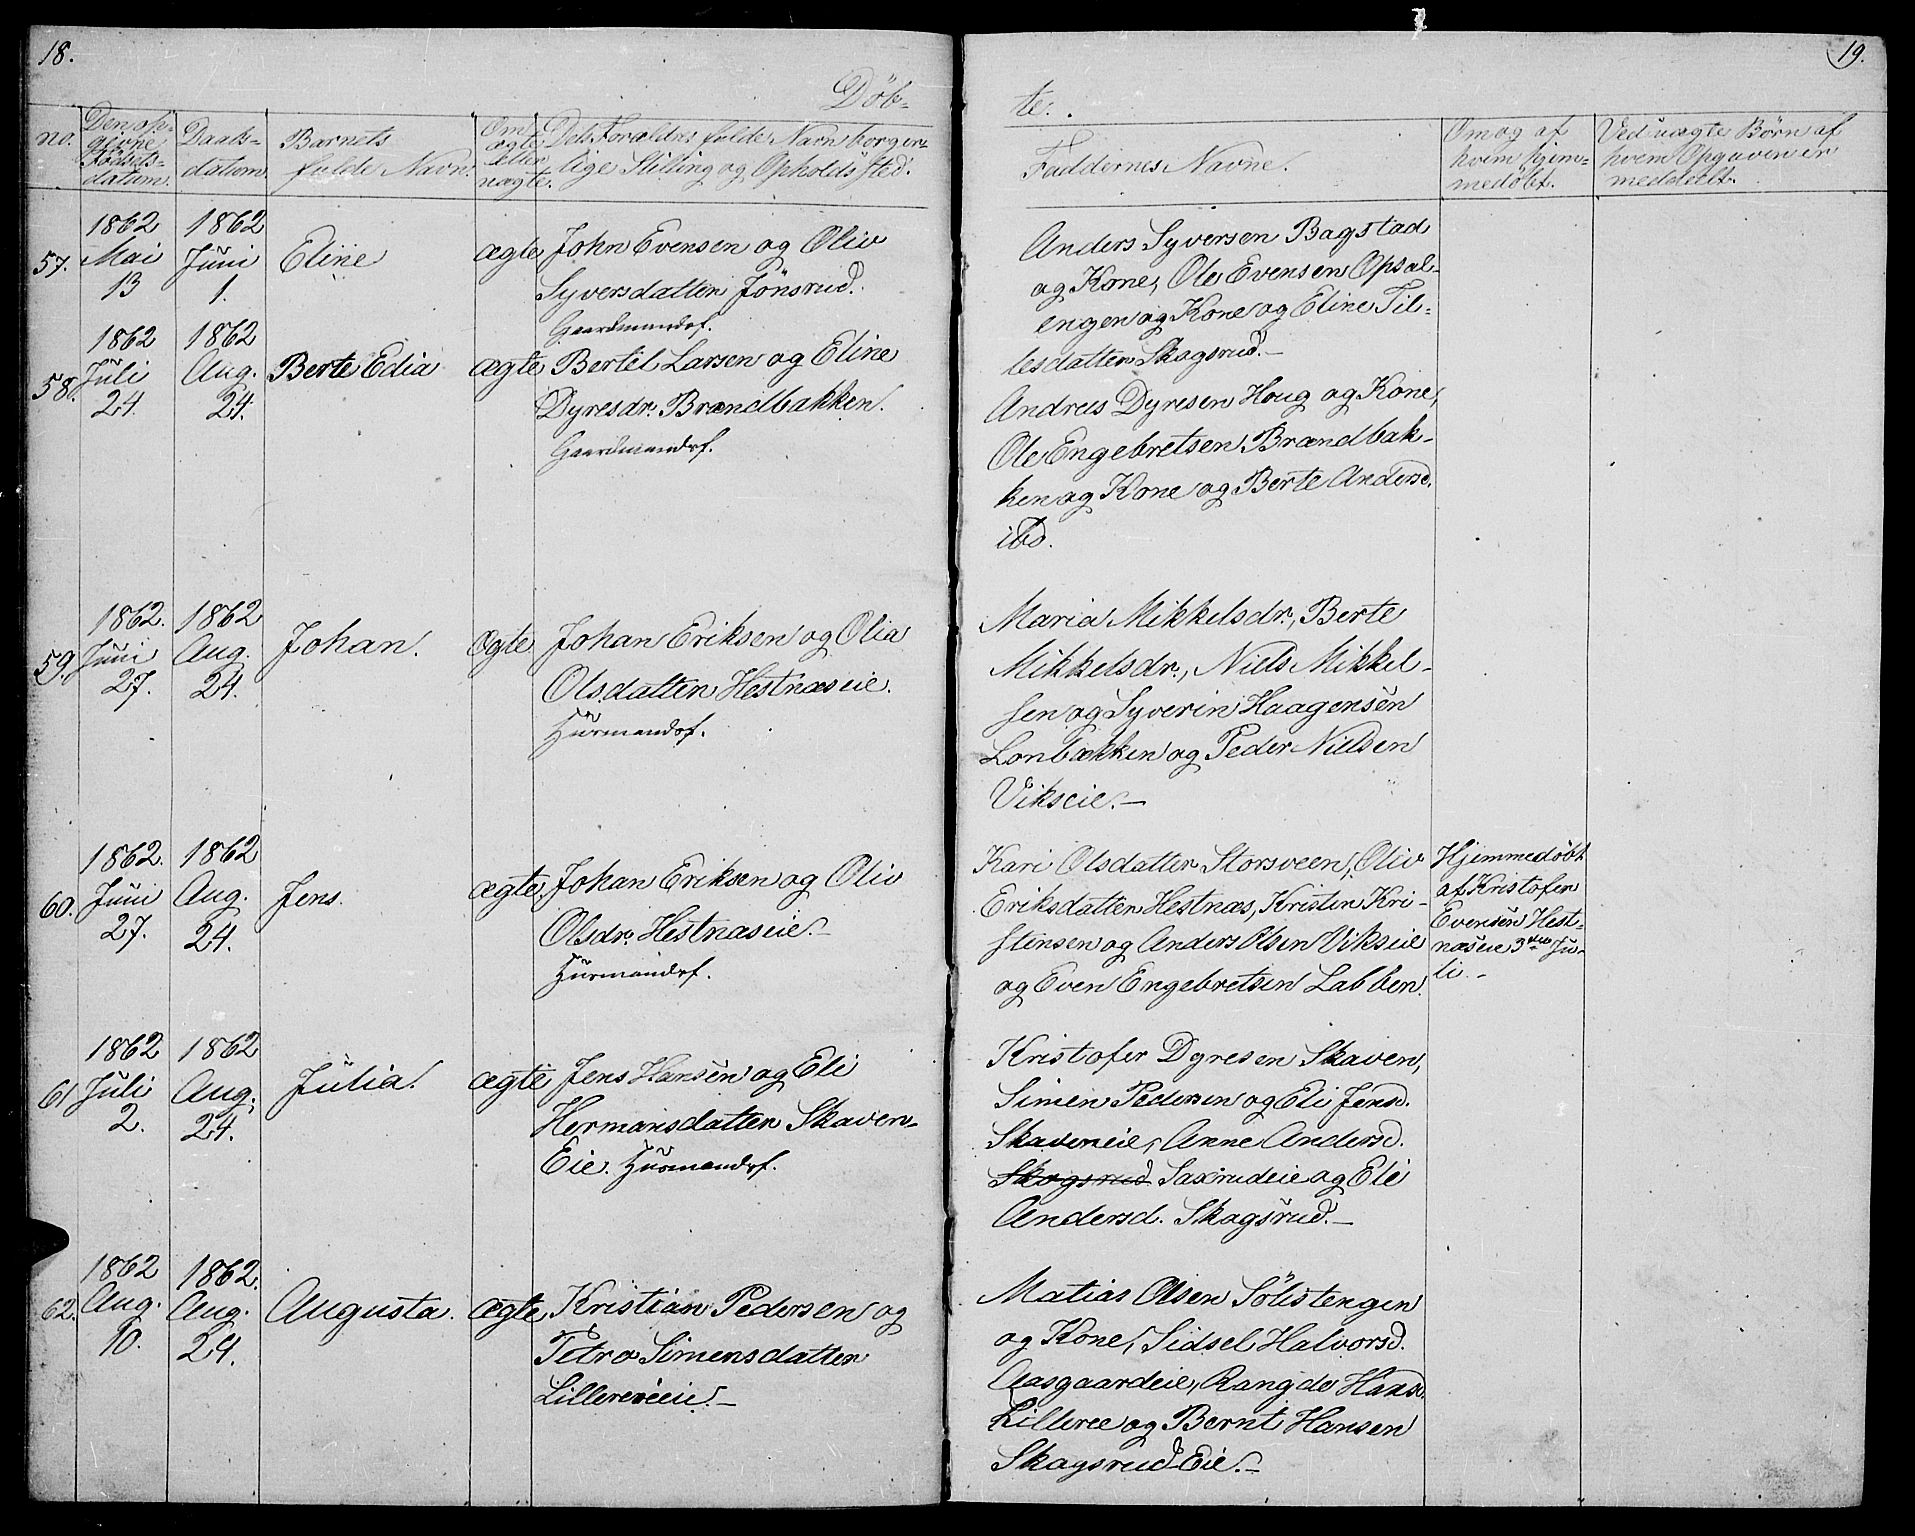 18.
19.
Döb-
te.
no.
Den op-
givne
Födsels-
datum.
Daabs-
datum.
Barnets
fulde Navn.
Om
ægte
eller
uægte.
Dets Forældres fulde Navn borger-
lige Stilling og Opholds Sted.
Faddernes Navne.
Om og af
hvem hjem-
medöbt.
Ved uægte Börn af
hvem Opgaven er
meddeelt.
57.
1862
Mai
13
1862
Juni
1.
Eline
ægte
John Evensen og Oliv
Syversdatter Jönsrud.
Gaardmandsf.
Anders Syversen Bagstad
og Kone, Ole Evensen Opsal-
engen og Kone og Eline Til-
lesdatter Skagsrud.-
58.
1862
Juli
24
1862
Aug.
24.
Berte Edia
ægte
Bertel Larsen og Eline
Dyresdr. Brændbakken.
Gaardmandsf.
Andreas Dyresen Houg og Kone,
Ole Engebretsen Brændbak-
ken og Kone og Berte Andersd.
ibd.
59.
1862.
Juni
27.
1862
Aug.
24.
Johan.
ægte
Johan Eriksen og Olia
Olsdatter Hestnæseie.
Husmandsf.
Maria Mikkelsdr., Berte
Mikkelsdr., Niels Mikkel-
sen og Syverin Haagensen
Lonbækken og Peder Nielsen
Vikseie.-
60.
1862.
Juni
27.
1862
Aug.
24.
Jens.
ægte
Johan Eriksen og Oliv
Olsdr. Hestnæseie.-
Husmandsf.
Kari Olsdatter Storsveen, Oliv
Eriksdatter Hestnæs, Kristen Kri-
stensen og Anders Olsen Vikseie
og Even Engebretsen Labben.
Hjemmedöbt
af Kristofer
Evensen Hest-
næseie 3die Ju-
li.-
61
1862
Juli
2.
1862
Aug.
24.
Julia.
ægte
Jens Hansen og Eli
Hermansdatter Skaven-
Eie. Husmandsf.
Kristofer Dyresen Skaven,
Simen Pedersen og Eli Jensd.
Skaveneie, Anne Andersd.
Skogsrud Saxrudeie og Eli
Andersd. Skagsrud.-
62.
1862
Aug.
10.
1862.
Aug.
24.
Augusta.
ægte
Kristian Pedersen og
Petra Simensdatter
Lillereeie.-
Matias Olsen Sölistengen
og Kone, Sidsel Halvorsd.
Aasgaardeie, Rangde Hansd.
Lilleree og Bernt Hansen
Skagsrud-Eie.-